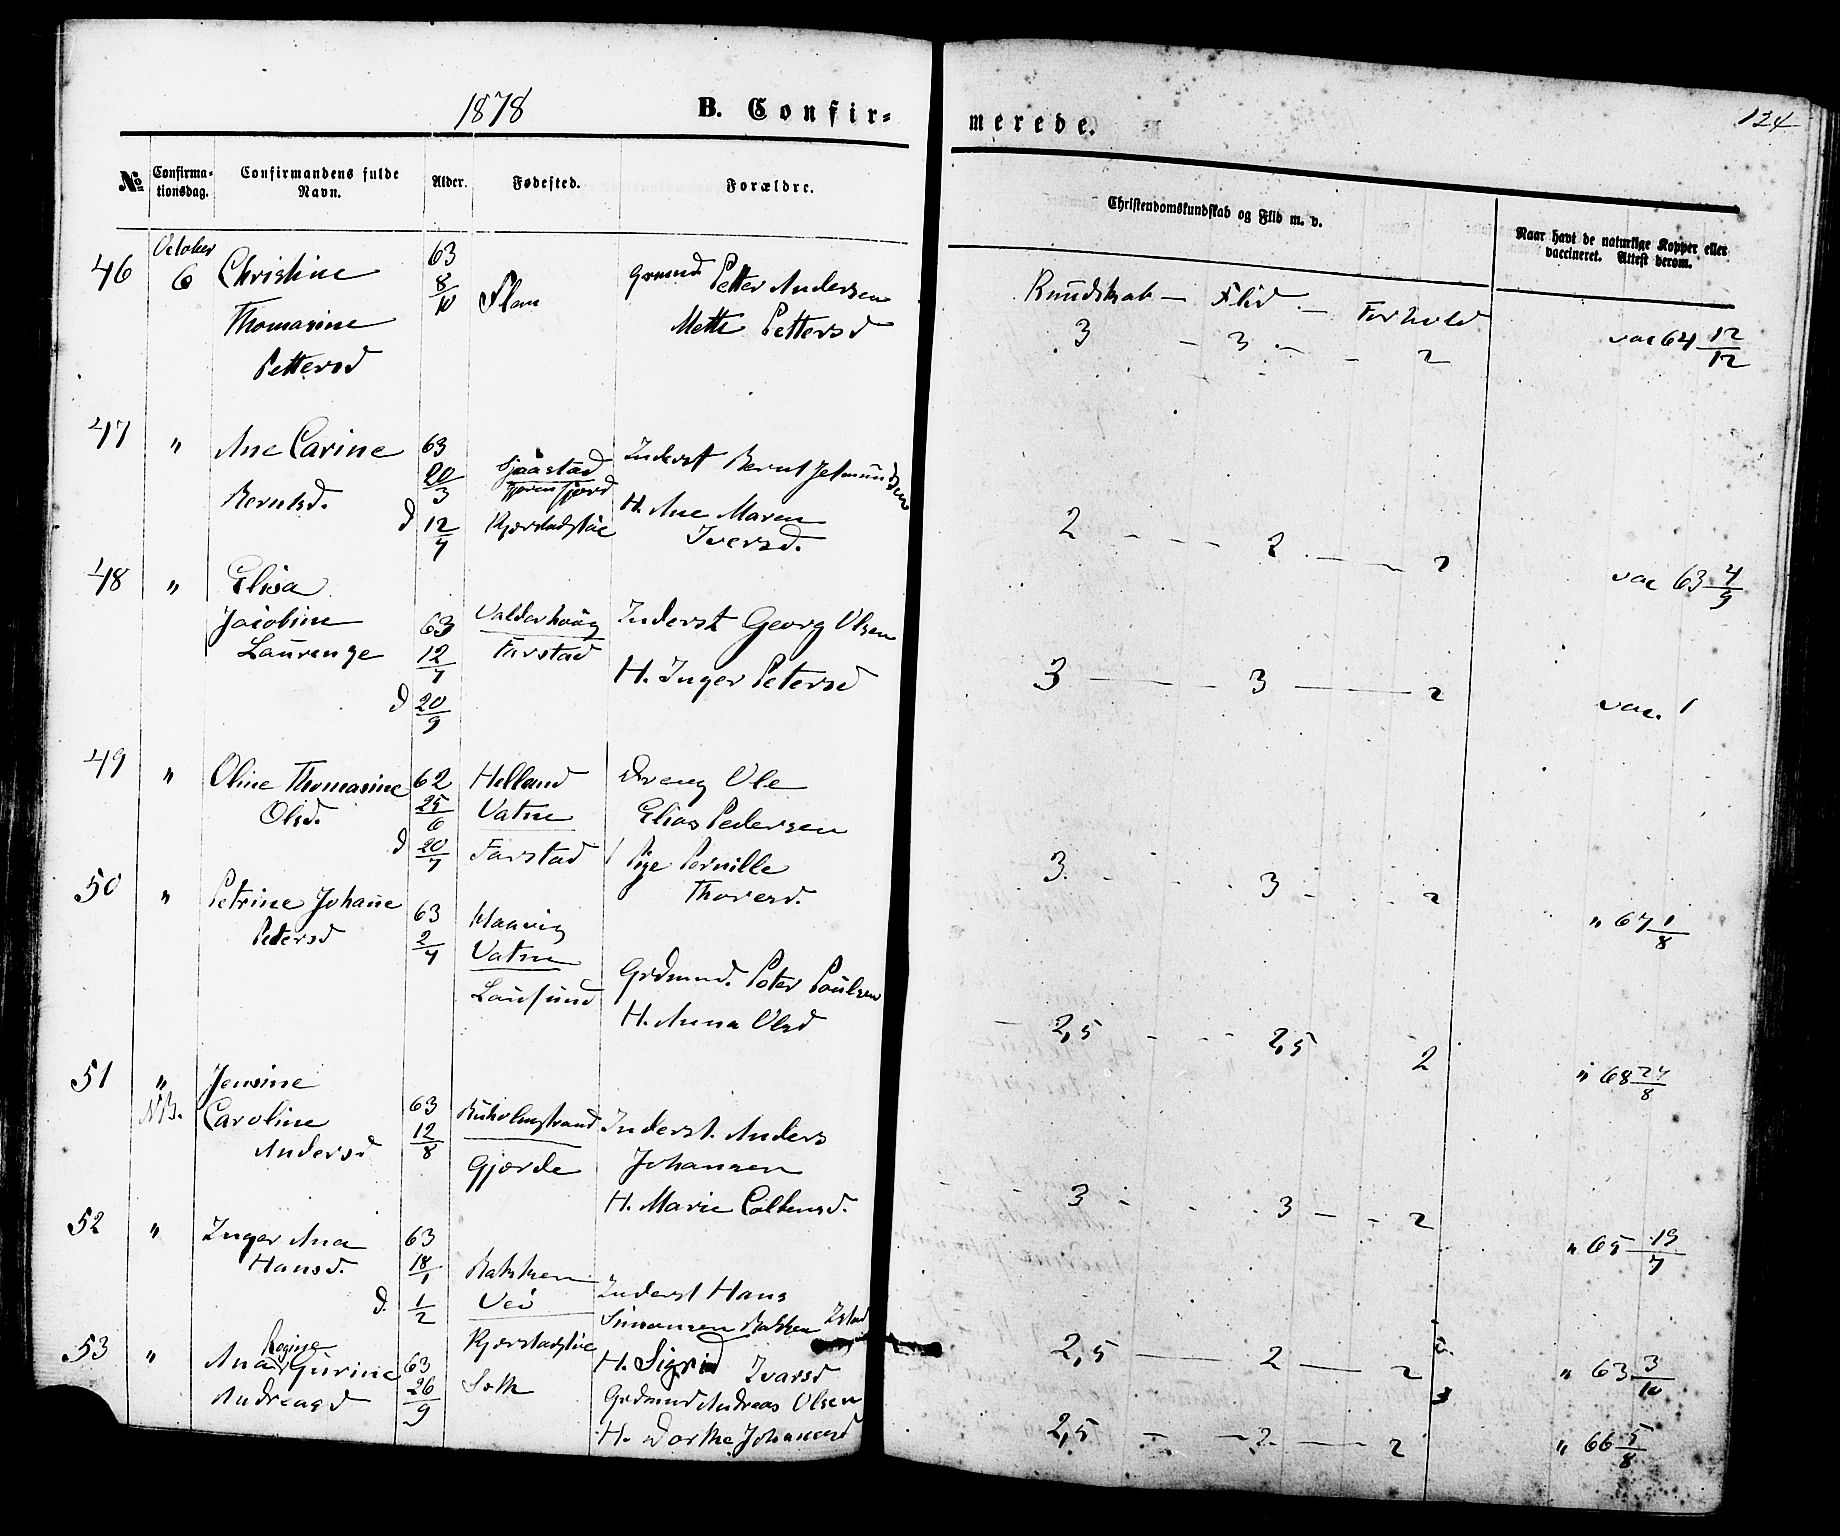 1878
B. Confir-
merede.
124
No
Confirma-
tionsdag.
Confirmandens fulde
Navn.
Alder.
Fødested.
Forældre.
Christendomskundskab og Flid m. v.
Naar havt de naturlige Kopper eller
vaccineret. Attest derom.
46
October
6
Christine
Thomasine
Pettersd
63
8/10
Petter Andersen
Mette Pettersd
Kundskab — Flid — Forhold
3 - 3 - - 2
vac 64 12/12
47
"
Ane Carine
Berntsd.
63
20/3
d 12/4
Inderst Bernt
H. Ane Maren
Iversd.
2 - - - 2 - - 2
vac 63 4/9
48
"
Elisa
Jacobine
Laurenze
63
12/7
d 20/9
Valderhoug
Farstad
Inderst Georg Olsen
H. Inger Petersd
3 — - 3 — 2
vac. 1
49
"
Oline Thomasine
Olsd.
62
25/6
d 20/7
Helland
Vatne
Farstad
Dreng Ole
Elias Pedersen
Pige Pernille
Thoresd.
3 - - 3 - - 2
" 67 1/8
50
"
Petrine Johanne
Petersd
63
2/4
Haavig
Vatne
Grdmand. Peter Paulsen
H. Anna Olsd
- 2,5 - - - 2,5 2
" 68 24/8
51
"
NB.
Jensine
Caroline
Andersd
63
12/8
Gjørde
Inderst. Anders
Johansen
H. Marie Colbensd.
- 3 - - 3 - - 2
" 65 19/7
52
"
Inger Ana
Hansd.
63
18/1
d. 1/2
Bakken
Veø
Inderst Hans
Simonsen Bakken
H. Sigrid Ivarsd
2,5 — 2 — 2
" 63 3/10
53
"
Regine
Ana Gurine
Andreasd
63
26/9
Grdmand Andreas Olsen
H. Dorthe Johannesd
2,5 - - 2 — 2
" 66 5/8